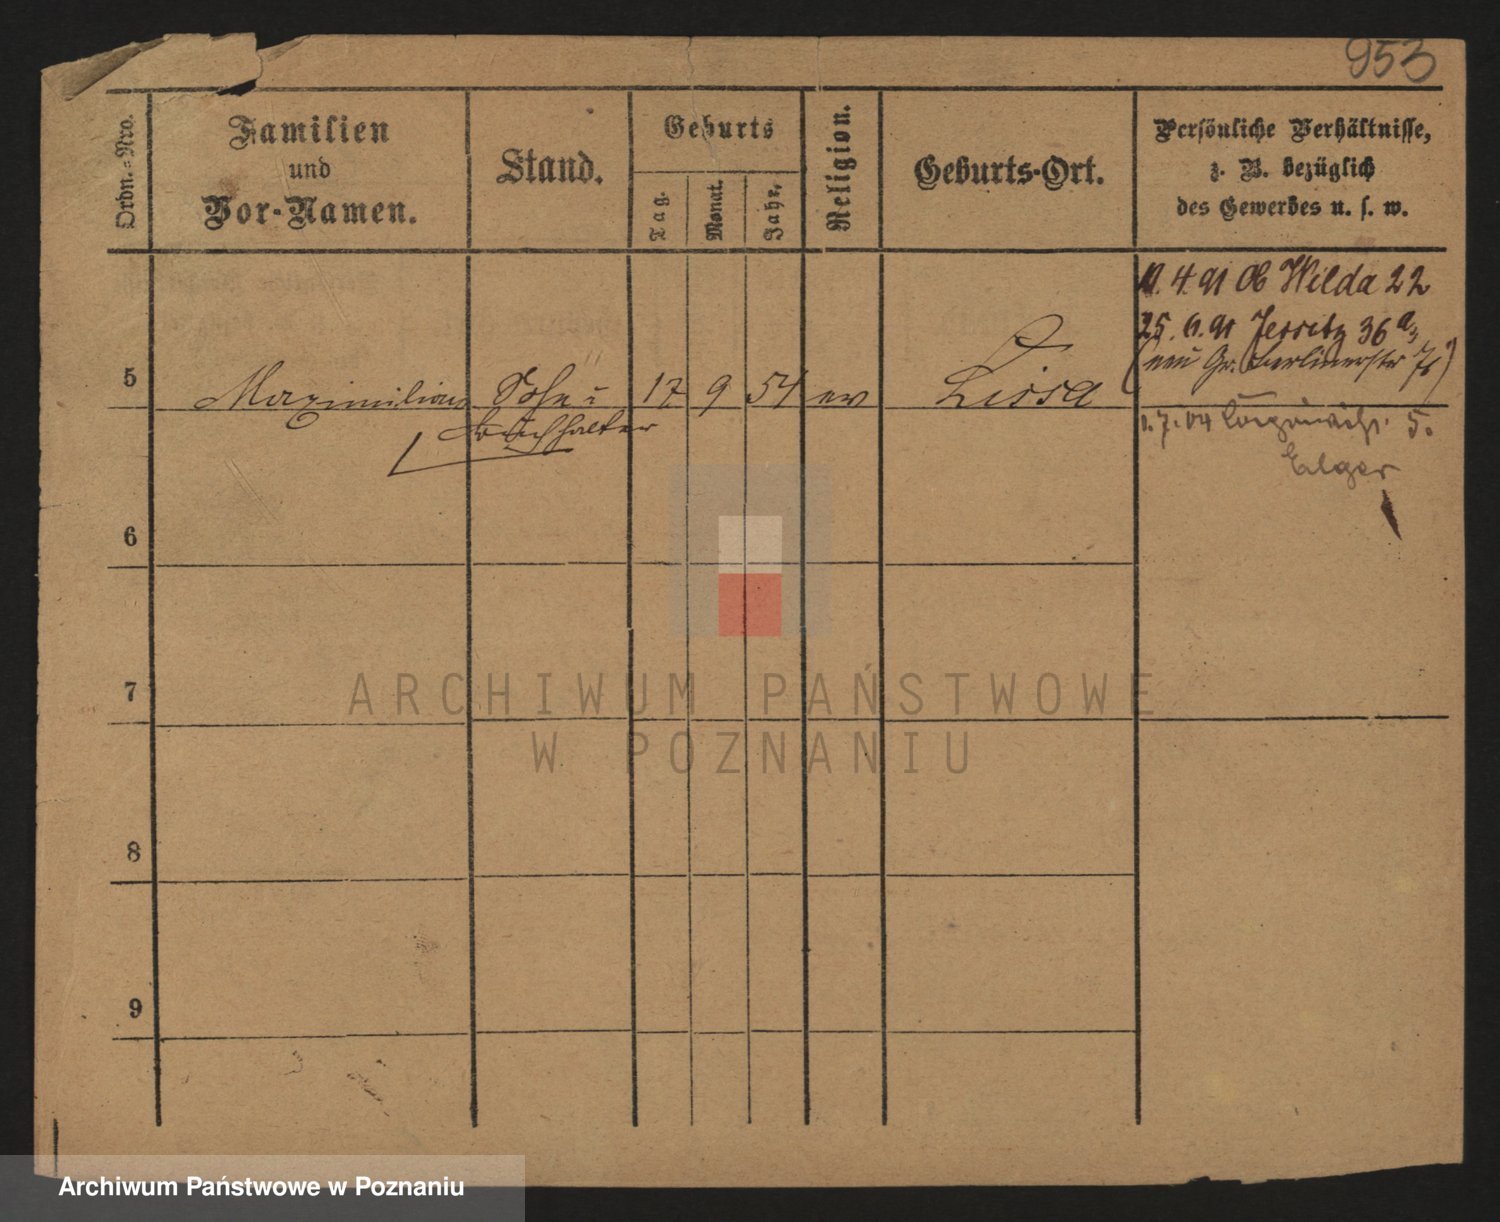 953
Ordn.-Nro.
Familien
und
Vor-Namen.
Stand.
Geburts
Tag.
Monat.
Jahr.
Religion.
Geburts-Ort.
Persönliche Verhältnisse,
z. B. bezüglich
des Gewerbes u. s. w.
4. 91 Ob Wilda 22
25. 6. 91 Jersitz 36a,
(neu Gr. Berlinerstr 76)
5 Maximilian Sohn 17 9 54 ev Lissa
Buchhalter
1.7.04 5.
Elger
6
7
ARCHIWUM PAŃSTWOWE
W POZNANIU
8
9
Archiwum Państwowe w Poznaniu